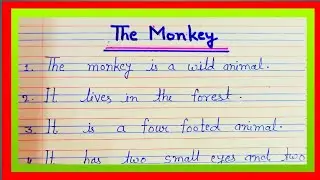 The Monkey
1. The monkey is a wild animal.
2. It lives in the forest.
3. It is a four footed animal.
4. It has two small eyes and two